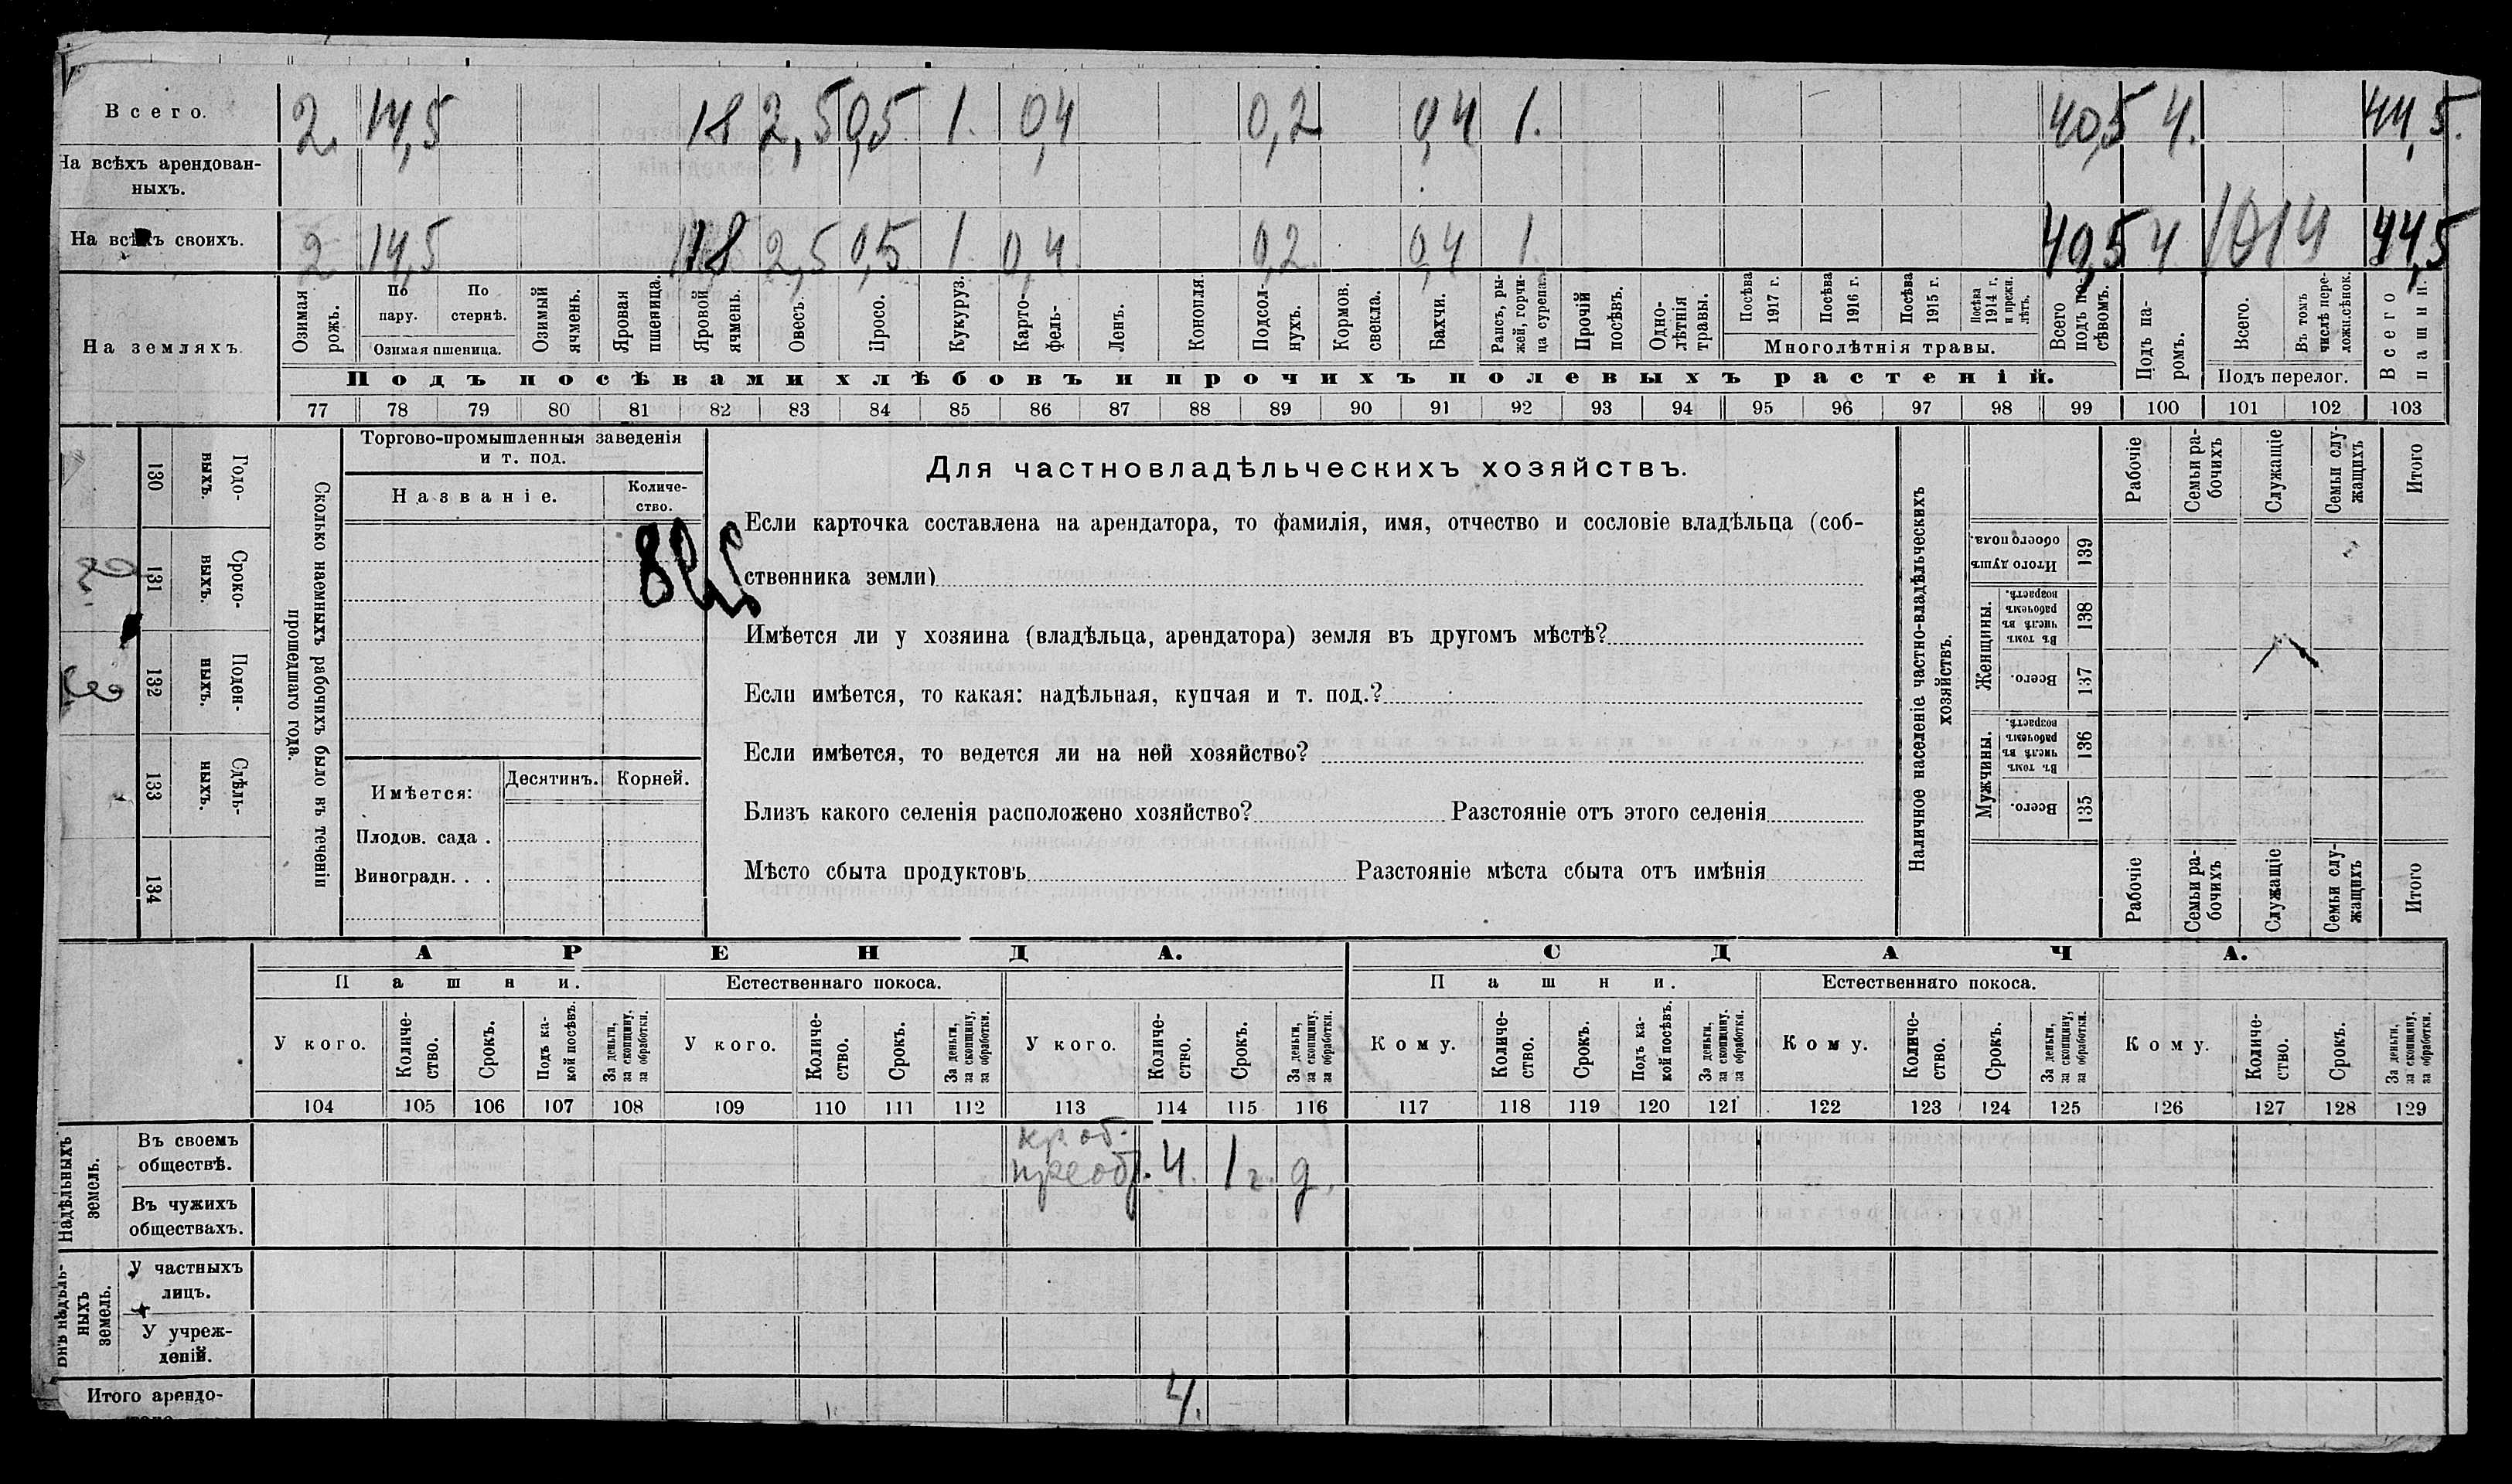 Всего. 2. 14,5 18 2,5 0,5 1. 0,4 0,2 0,4 1. 40,5 4. 44,5.
На всѣхъ арендован-
ныхъ.
На всѣхъ своихъ. 2 14,5 18 2,5 0,5 1. 0,4. 0,2. 0,4 1. 40,5 4 44,5
На земляхъ.
Озимая рожь.
По пару.
По стернѣ.
Озимая пшеница.
Озимый ячмень.
Яровая пшеница.
Яровой ячмень.
Овесъ.
Просо.
Кукуруз.
Карто-
фель-
Ленъ.
Конопля.
Подсол-
нухъ.
Кормов. свекла.
Бахчи.
Рапсъ, ры-
жей, горчи-
ца сурепа.
Прочій посѣвъ.
Одно-
лѣтнія травы.
Посѣва 1917 г.
Посѣва 1916 г.
Посѣва 1915 г.
Посѣва 1914 г. и прежн. лѣтъ.
Многолѣтнія травы.
Всего подъ по-
сѣвомъ.
Подъ посѣвами хлѣбовъ и прочихъ полевыхъ растеній.
Подъ па-
ромъ.
Всего.
Въ томъ числѣ пере-
ложн.сѣнок.
Подъ перелог.
Всего пашни.
77 78 79 80 81 82 83 84 85 86 87 88 89 90 91 92 93 94 95 96 97 98 99 100 101 102 103
130 131 132 133 134
Годо-
выхъ.
Сроко-
выхъ.
Поден-
ныхъ.
Сдѣль-
ныхъ.
Сколько наемныхъ рабочихъ было въ теченіи
прошедшаго года.
Торгово-промышленныя заведенія
и т. под.
Названіе.
Количе-
ство.
Имѣется:
Десятинъ. Корней.
Плодов. сада .
Виноградн. . .
Для частновладѣльческихъ хозяйствъ.
Если карточка составлена на арендатора, то фамилія, имя, отчество и сословіе владѣльца (соб-
ственника земли)
Имѣется ли у хозяина (владѣльца, арендатора) земля въ другомъ мѣстѣ?
Если имѣется, то какая: надѣльная, купчая и т. под.?
Если имѣется, то ведется ли на ней хозяйство?
Близъ какого селенія расположено хозяйство? Разстояніе отъ этого селенія
Мѣсто сбыта продуктовъ Разстояніе мѣста сбыта отъ имѣнія
Наличное населеніе частно-владѣльческихъ
хозяйствъ.
Рабочіе
Семьи ра-
бочихъ
Служащіе
Семьи слу-
жащихъ
Итого
Итого душъ обоего пола. 139
Женщины.
Въ томъ числѣ въ рабочемъ возрастѣ. 138
Всего. 137
Мужчины.
Въ томъ числѣ въ рабочемъ возрастѣ. 136
Всего. 135
Рабочіе
Семьи ра-
бочихъ
Служащіе
Семьи слу-
жащихъ
Итого
АРЕНДА. СДАЧА.
Пашни. Естественнаго покоса. Пашни. Естественнаго покоса.
У кого.
Количе-
ство.
Срокъ.
Подъ ка-
кой посѣвъ.
За деньги,
за скопщину,
за обработки.
У кого.
Количе-
ство.
Срокъ.
За деньги,
за скопщину,
за обработки.
У кого.
Количе-
ство.
Срокъ.
За деньги,
за скопщину,
за обработки.
Кому.
Количе-
ство.
Срокъ.
Подъ ка-
кой посѣвъ.
За деньги,
за скопщину,
за обработки.
Кому.
Количе-
ство.
Срокъ.
За деньги,
за скопщину,
за обработки.
Кому.
Количе-
ство.
Срокъ.
За деньги,
за скопщину,
за обработки.
104 105 106 107 108 109 110 111 112 113 114 115 116 117 118 119 120 121 122 123 124 125 126 127 128 129
Надѣльныхъ
земель.
Въ своемъ
обществѣ.
кр об.
преоб. 4. 1 г. д.
Въ чужихъ
обществахъ.
Внѣ надѣль-
ныхъ
земель.
У частныхъ
лицъ.
У учреж-
деній.
Итого арендо- 4.